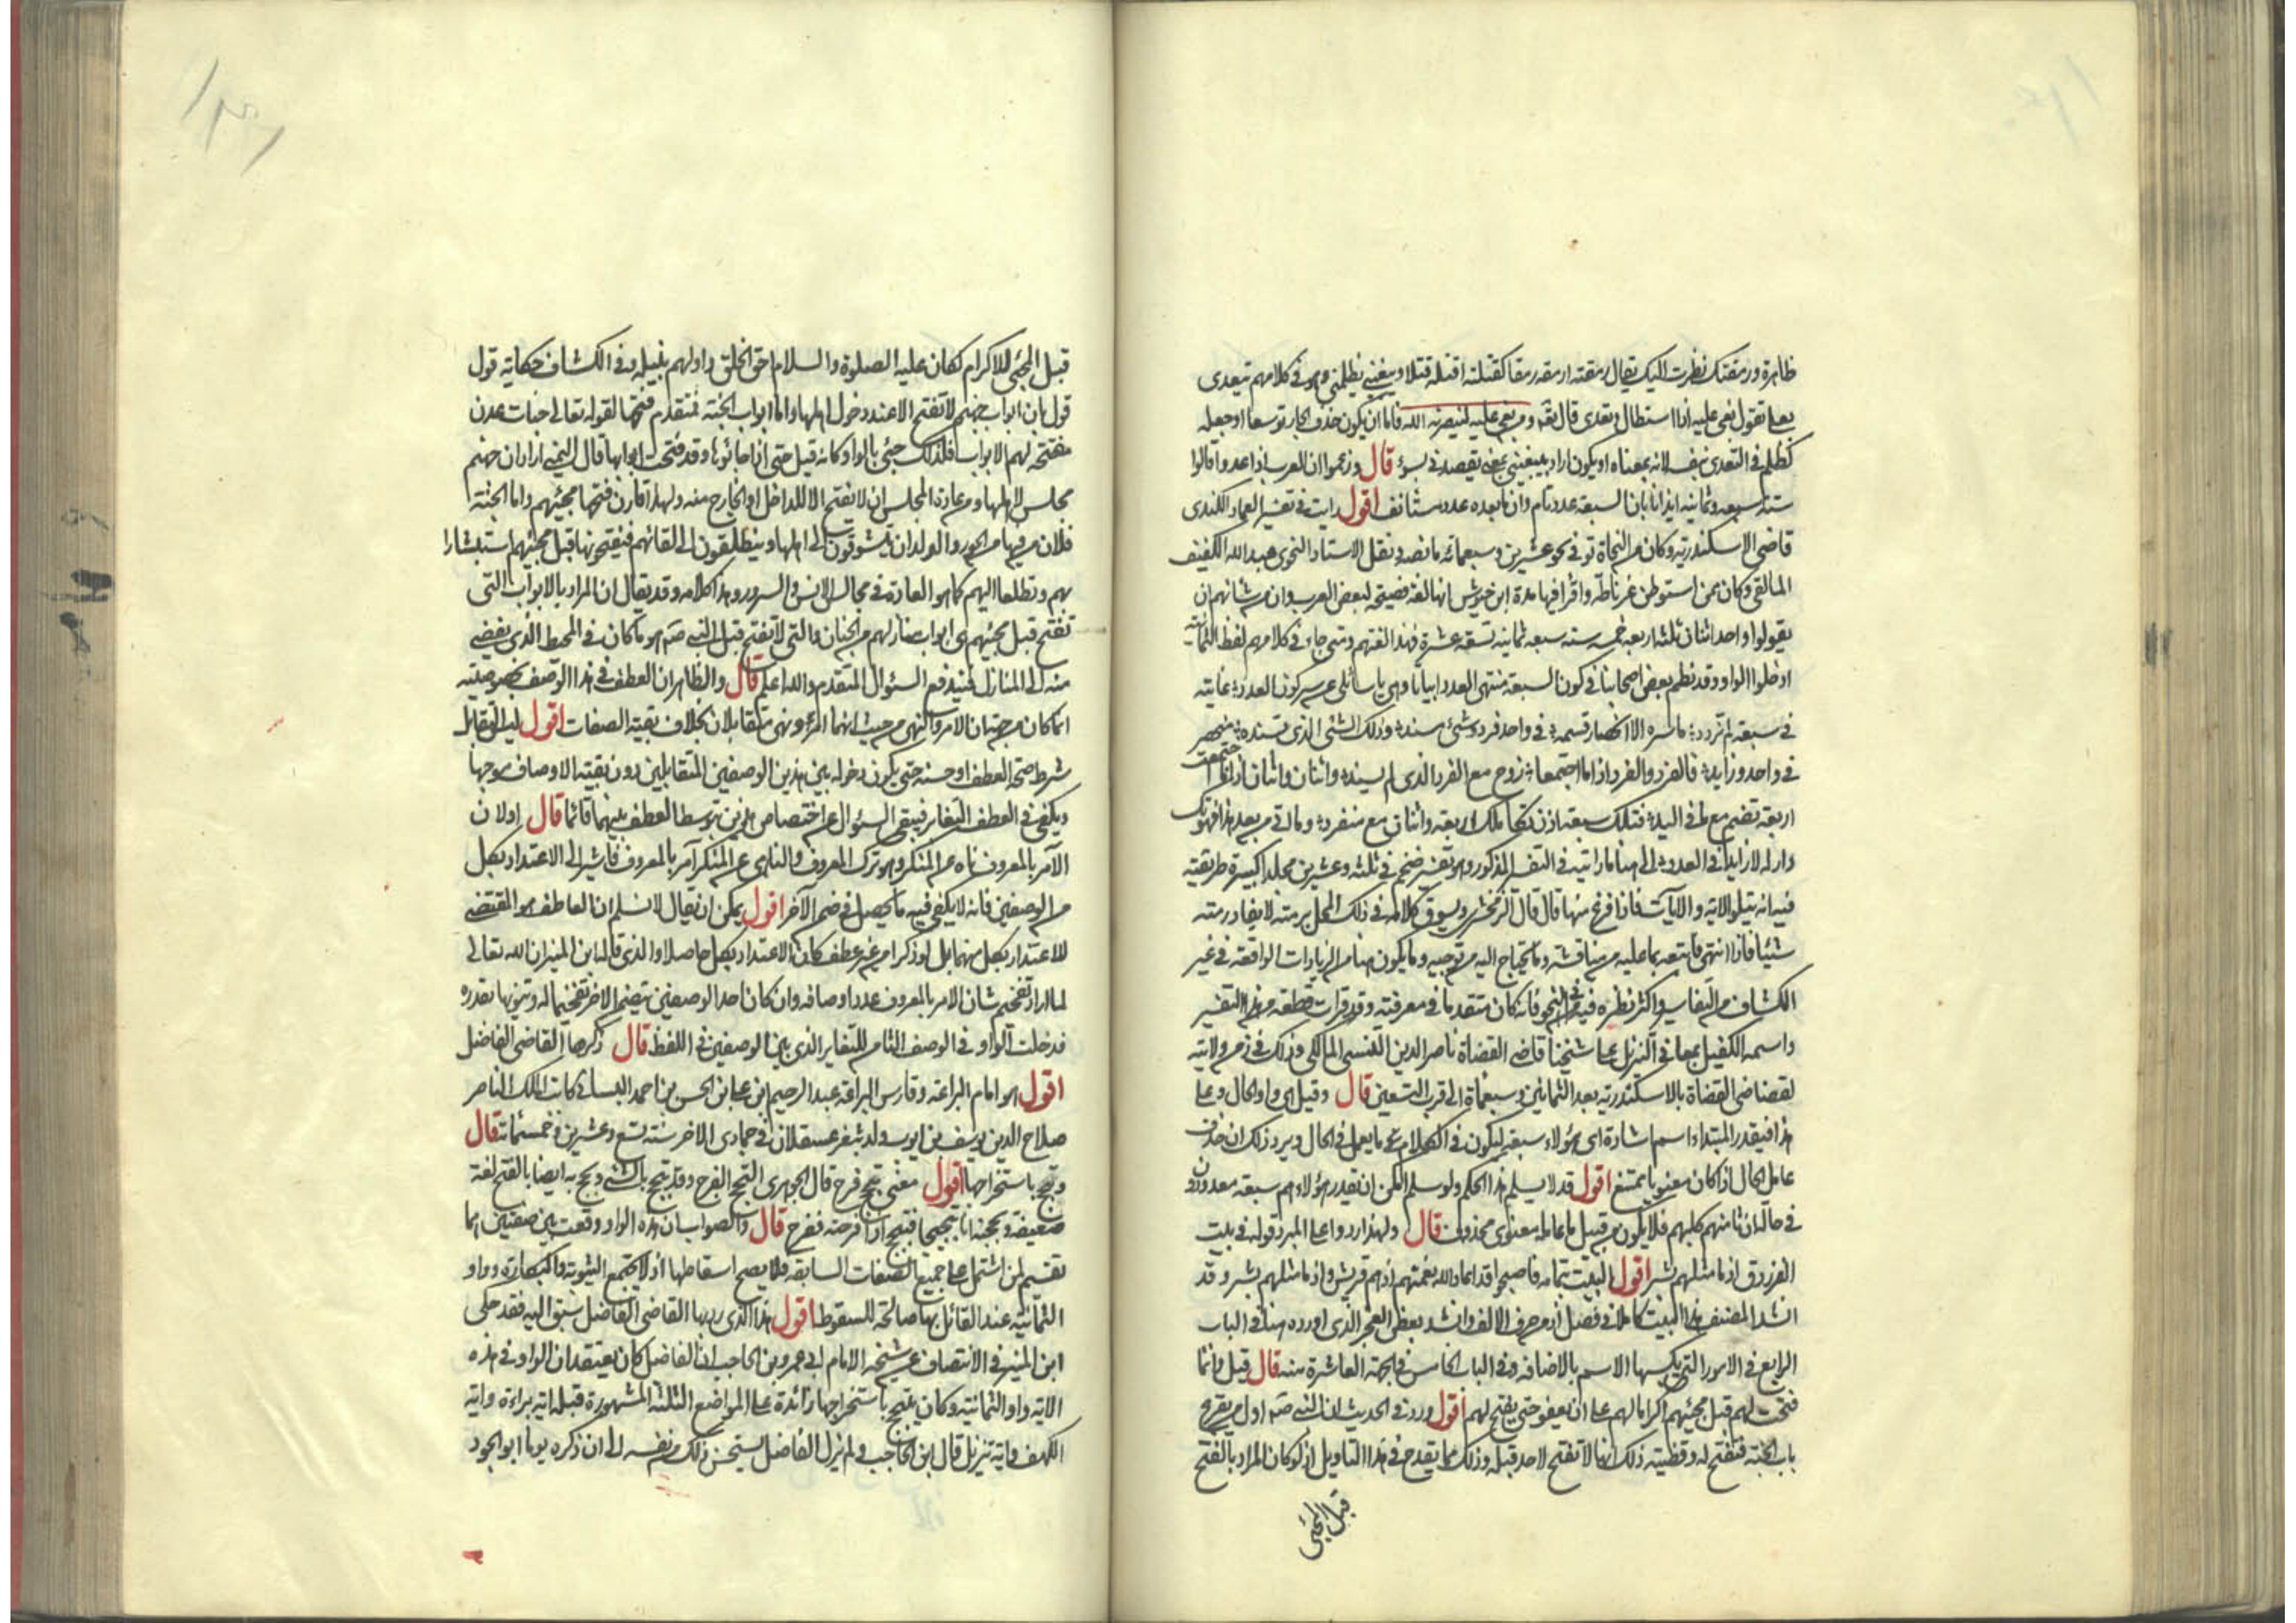 ظاهرة ورمقتك نظرت اليك يقال رمقته ارمقه رمقا كقتلته اقتله قتلا ويبغيني يظلمني وهو في كلامهم تتعدى
بعلى تقول بغى عليه اذا استطال وتعدى قال تعه ومن بغي عليه لينصرنه الله فاما ان يكون حذف الجار توسعا او جعله
كظلم في التعدي بنفسه لانه بمعناه او يكون اراد بيبغيني يقصدني بسوء قال وزعموا ان العرب اذا عدوا قالوا
ستة سبعة وثمانية ايذانا بان السبعة عدد تام وان ما بعده عدد مستانف اقول رايت في تفسير العماد الكندي
قاضي الاسكندرية وكان من النحاة توفي نحو عشرين وسبعمائة ما نصه ونقل الاستاد النحوي عبد الله الكفيف
المالقي وكان ممن استوطن غرناطه واقرا فيها مدة ابن حبوش انها لغة فصيحة لبعض العرب وان من شانهم ان
يقولوا واحد اثنان ثلثه اربعه خمسه سته سبعه ثمانيه تسعه عشرة فهذا لغتهم ومتى جاء في كلامهم لفظ الثمانية
ادخلوا الواو وقد نظم بعض اصحابنا في كون السبعة منتهى العدد ابياتا وهي يا سائلي عن سر كون العدد غايته
في سبعة لم تزدد ما سره الا انحصار قسمه في واحد فرد وشئ مسند وذلك الشئ الذي تسنده منحصر
في واحد وزايد فالفرد والفرد اذا ما اجتمعا زوج مع الفرد الذي لم يسند واثنان واثنان اذا ما اجتمعت
اربعة تضم مع ما في اليد فتلك سبعة اذن تكملت اربعة واثنان مع منفرد وما اتى من بعد هذا فهو تك
رار له لا زايدا في العدد الى هنا ما رايته في التفسير المذكور وهو تفسير ضخم في ثلثه وعشرين مجلدا كبيرة طريقته
فيه انه يتلو الايه والآيات فاذا فرغ منها قال قال الزمخشري ويسوق كلامه في ذلك المحل برمته لا يغادر منه
شيئا فاذا انتهى اتبعه بما عليه من مناقشة وما يحتاج اليه من توجيه وما يكون هنا من الزيادات الواقعة في غير
الكشاف من التفاسير واكثر نظره فيه في النحو فانه كان متقدما في معرفته وقد قرات قطعة من هذا التفسير
واسمه الكفيل بمعاني التنزيل على شيخنا قاضي القضاة ناصر الدين التنسي المالكي وذلك في زمن ولايته
لقضا قاضي القضاة بالاسكندرية بعد الثمانين وسبعمأة الى قرب التسعين قال وقيل هي واو الحال وعلى
هذا فيقدر المبتداء اسم اشارة اي هؤلاء سبعة ليكون في الكلام ما يعمل في الحال ويرد ذلك ان حذف
عامل الحال اذا كان معنويا ممتنع اقول قد لا يسلم هذا الحكم ولو سلم امكن ان يقدر هؤلاء هم سبعة معدودون
في حال ان ثامنهم كلبهم فلا يكون من قبيل ما عامله معنوي محذوف قال ولهذا ردوا على المبرد قوله في بيت
الفرزدق اذ ما مثلهم بشر اقول البيت بتمامه فاصبحوا قد اعاد الله نعمتهم اذ هم قريش واذ ما مثلهم بشر وقد
انشد المصنف هذا البيت كاملا في فصل اذ من حرف الالف وانشد بعض العجز الذي اورده هنا في الباب
الرابع في الامور التي يكسبها الاسم بالاضافه وفي الباب الخامس في الجهة العاشرة منه قال قيل وانما
فتحت لهم قبل مجيئهم اكراما لهم على ان يقفوا حتى يفتح لهم اقول ورد في الحديث ان النبي صم اول من يقرع
باب الجنة فتفتح له وقضية ذلك انها لا تفتح لاحد قبله وذلك مما يقدح في هذا التاويل اذ لو كان المراد بالفتح
قبل المجئ
قبل المجئ للاكرام لكان عليه الصلوة والسلام احق الخلق واولهم بنيله وفي الكشاف حكاية قول
قول بان ابواب جهنم لا تفتح الا عند دخول اهلها واما ابواب الجنة فمتقدم فتحها لقوله تعالى جنات عدن
مفتحة لهم الابواب فلذلك جئ بالواو كانه قيل حتى اذا جاؤها وقد فتحت ابوابها قال اليمني اراد ان جهنم
محابس لاهلها ومن عادة المجلس ان لا يفتح الا للداخل او الخارج منه ولهذا قارن فتحها مجيئهم واما الجنة
فلان من فيها من الحور والولدان يتشوقون الى اهلها ويتطلعون الى لقائهم فيفتحونها قبل مجيئهم استبشارا
بهم وتطلعا اليهم كما هو العادة في مجالس الانس والسرور وهذا كلامه وقد يقال ان المراد بالابواب التي
تفتح قبل مجيئهم هي ابواب منازلهم من الجنان والتي لا تفتح قبل النبي صم هو ما كان في المحيط الذي يفضي
منه الى المنازل فيندفع السئوال المتقدم والله اعلم قال والظاهر ان العطف في هذا الوصف بخصوصيته
انما كان من جهة ان الامر والنهي من حيث انهما امر ونهي متقابلان بخلاف بقية الصفات اقول ليس التقابل
شرط صحة العطف او حسنه حتى يكون دخوله بين هذين الوصفين المتقابلين دون بقية الاوصاف موجها
ويكفي في العطف التغاير فيبقى السئوال عن اختصاص هذين بتوسط العطف بينهما قائما قال او لان
الآمر بالمعروف ناه عن المنكر وهو ترك المعروف والناهي عن المنكر آمر بالمعروف فاشير الى الاعتداد بكل
من الوصفين فانه لا يكفي فيه ما يحصل في ضمن الآخر اقول يمكن ان يقال لا نسلم ان العاطف هو المقتضي
للاعتداد بكل منهما بل لو ذكرا من غير عطف كان الاعتداد بكل حاصلا والذي قاله ابن المنير ان الله تعالى
لما اراد تفخيم شان الامر بالمعروف عدد اوصافه وان كان احد الوصفين يتضمن الاخر تفخيما له وتنويها بقدره
فدخلت الواو في الوصف الثامن للتغاير الذي بين الوصفين في اللفظ قال ذكرها القاضي الفاضل
اقول هو امام البراعة وفارس البراعة عبد الرحيم بن علي بن الحسن بن احمد البيساني كاتب الملك الناصر
صلاح الدين يوسف بن ايوب ولد بثغر عسقلان في جمادى الاخر سنة تسع وعشرين وخمسمائة قال
وتبجح باستخراجها اقول معنى تبجح فرح قال الجوهري التبجح الفرح وقد تبجح بالشئ وبجح به ايضا بالفتح لغة
ضعيفة وبجحته انا تبجيحا فتبجح اي افرحته ففرح قال والصواب ان هذه الواو وقعت بين صفتين هما
تقسيم لمن اشتمل على جميع الصفات السابقة فلا يصح اسقاطها اذ لا تجتمع الثيوبة والبكارة وواو
الثمانية عند القائل بها صالحة للسقوط اقول هذا الذي رد بها القاضي الفاضل سبق اليه فقد حكى
ابن المنير في الانتصاف عن شيخه الامام ابي عمرو بن الحاجب ان الفاضل كان يعتقد ان الواو في هذه
الايه واو الثمانية وكان يتبجح باستخراجها زائدة على المواضع الثلثة المشهورة قبله اية براءة واية
الكهف واية تنزيل قال ابن الحاجب ولم يزل الفاضل يستحسن ذلك من نفسه الى ان ذكره يوما ابو الجود